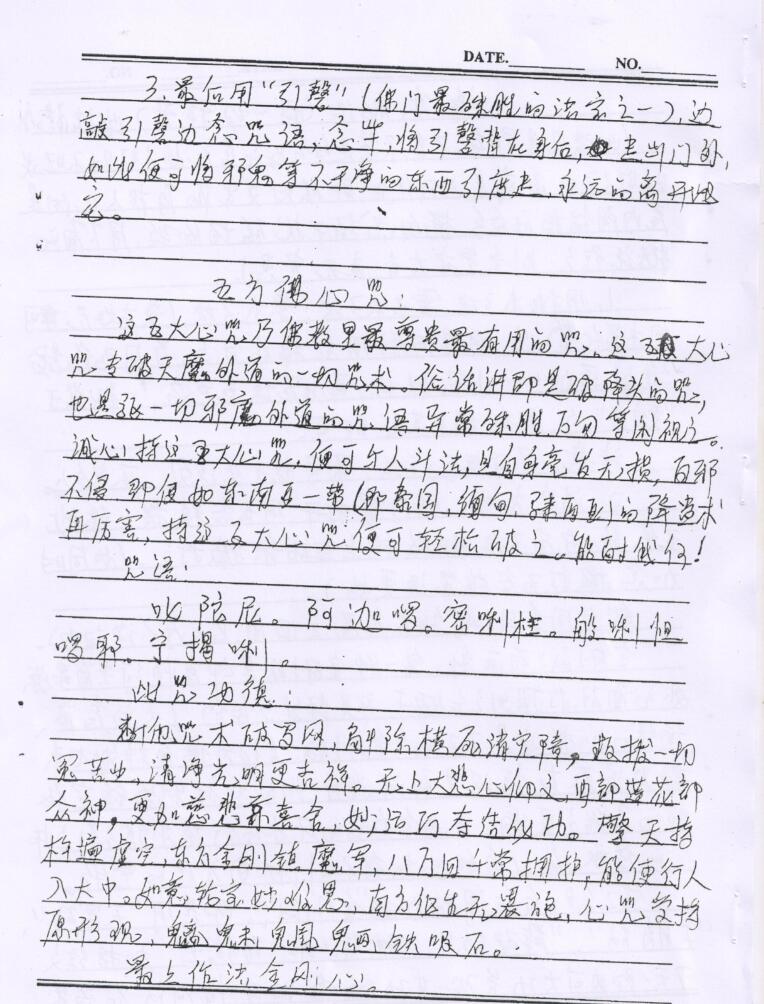 DATE. NO.
3、最后用“引磬”(佛门最殊胜的法宝之一),边
敲引磬边念咒语,念毕,将引磬背在身后,走出门外,
如此便可将邪鬼等不干净的东西引度走,永远的离开此
宅。
五方佛心咒
这五大心咒乃佛教里最尊贵最有用的咒。这五大心
咒专破天魔外道的一切咒术。俗话讲即是破降头的咒,
也是驱一切邪魔外道的咒语异常殊胜万勿等闲视之。
诚心持这五大心咒,便可与人斗法,且自身毫发无损,百邪
不侵即使如东南亚一带(即泰国,缅甸,马来西亚)的降头术
再厉害,持诵五大心咒便可轻松破之。能耐我何!
咒语:
叱陀尼。阿加啰。密唎柱。般唎怛
啰耶。宁揭唎。
此咒功德
敕他咒术破写网,解除横死消灾障。救拔一切
冤苦业,清净光明更吉祥。无上大悲心佛
众神,更加慈悲兼喜舍,
遍虚空,东方金刚镇魔军,八万四千常拥护,能使行人
入大中。如意妙难思,南方
原形现,魑魅魍魉铁吸石。
最上作法金刚心。